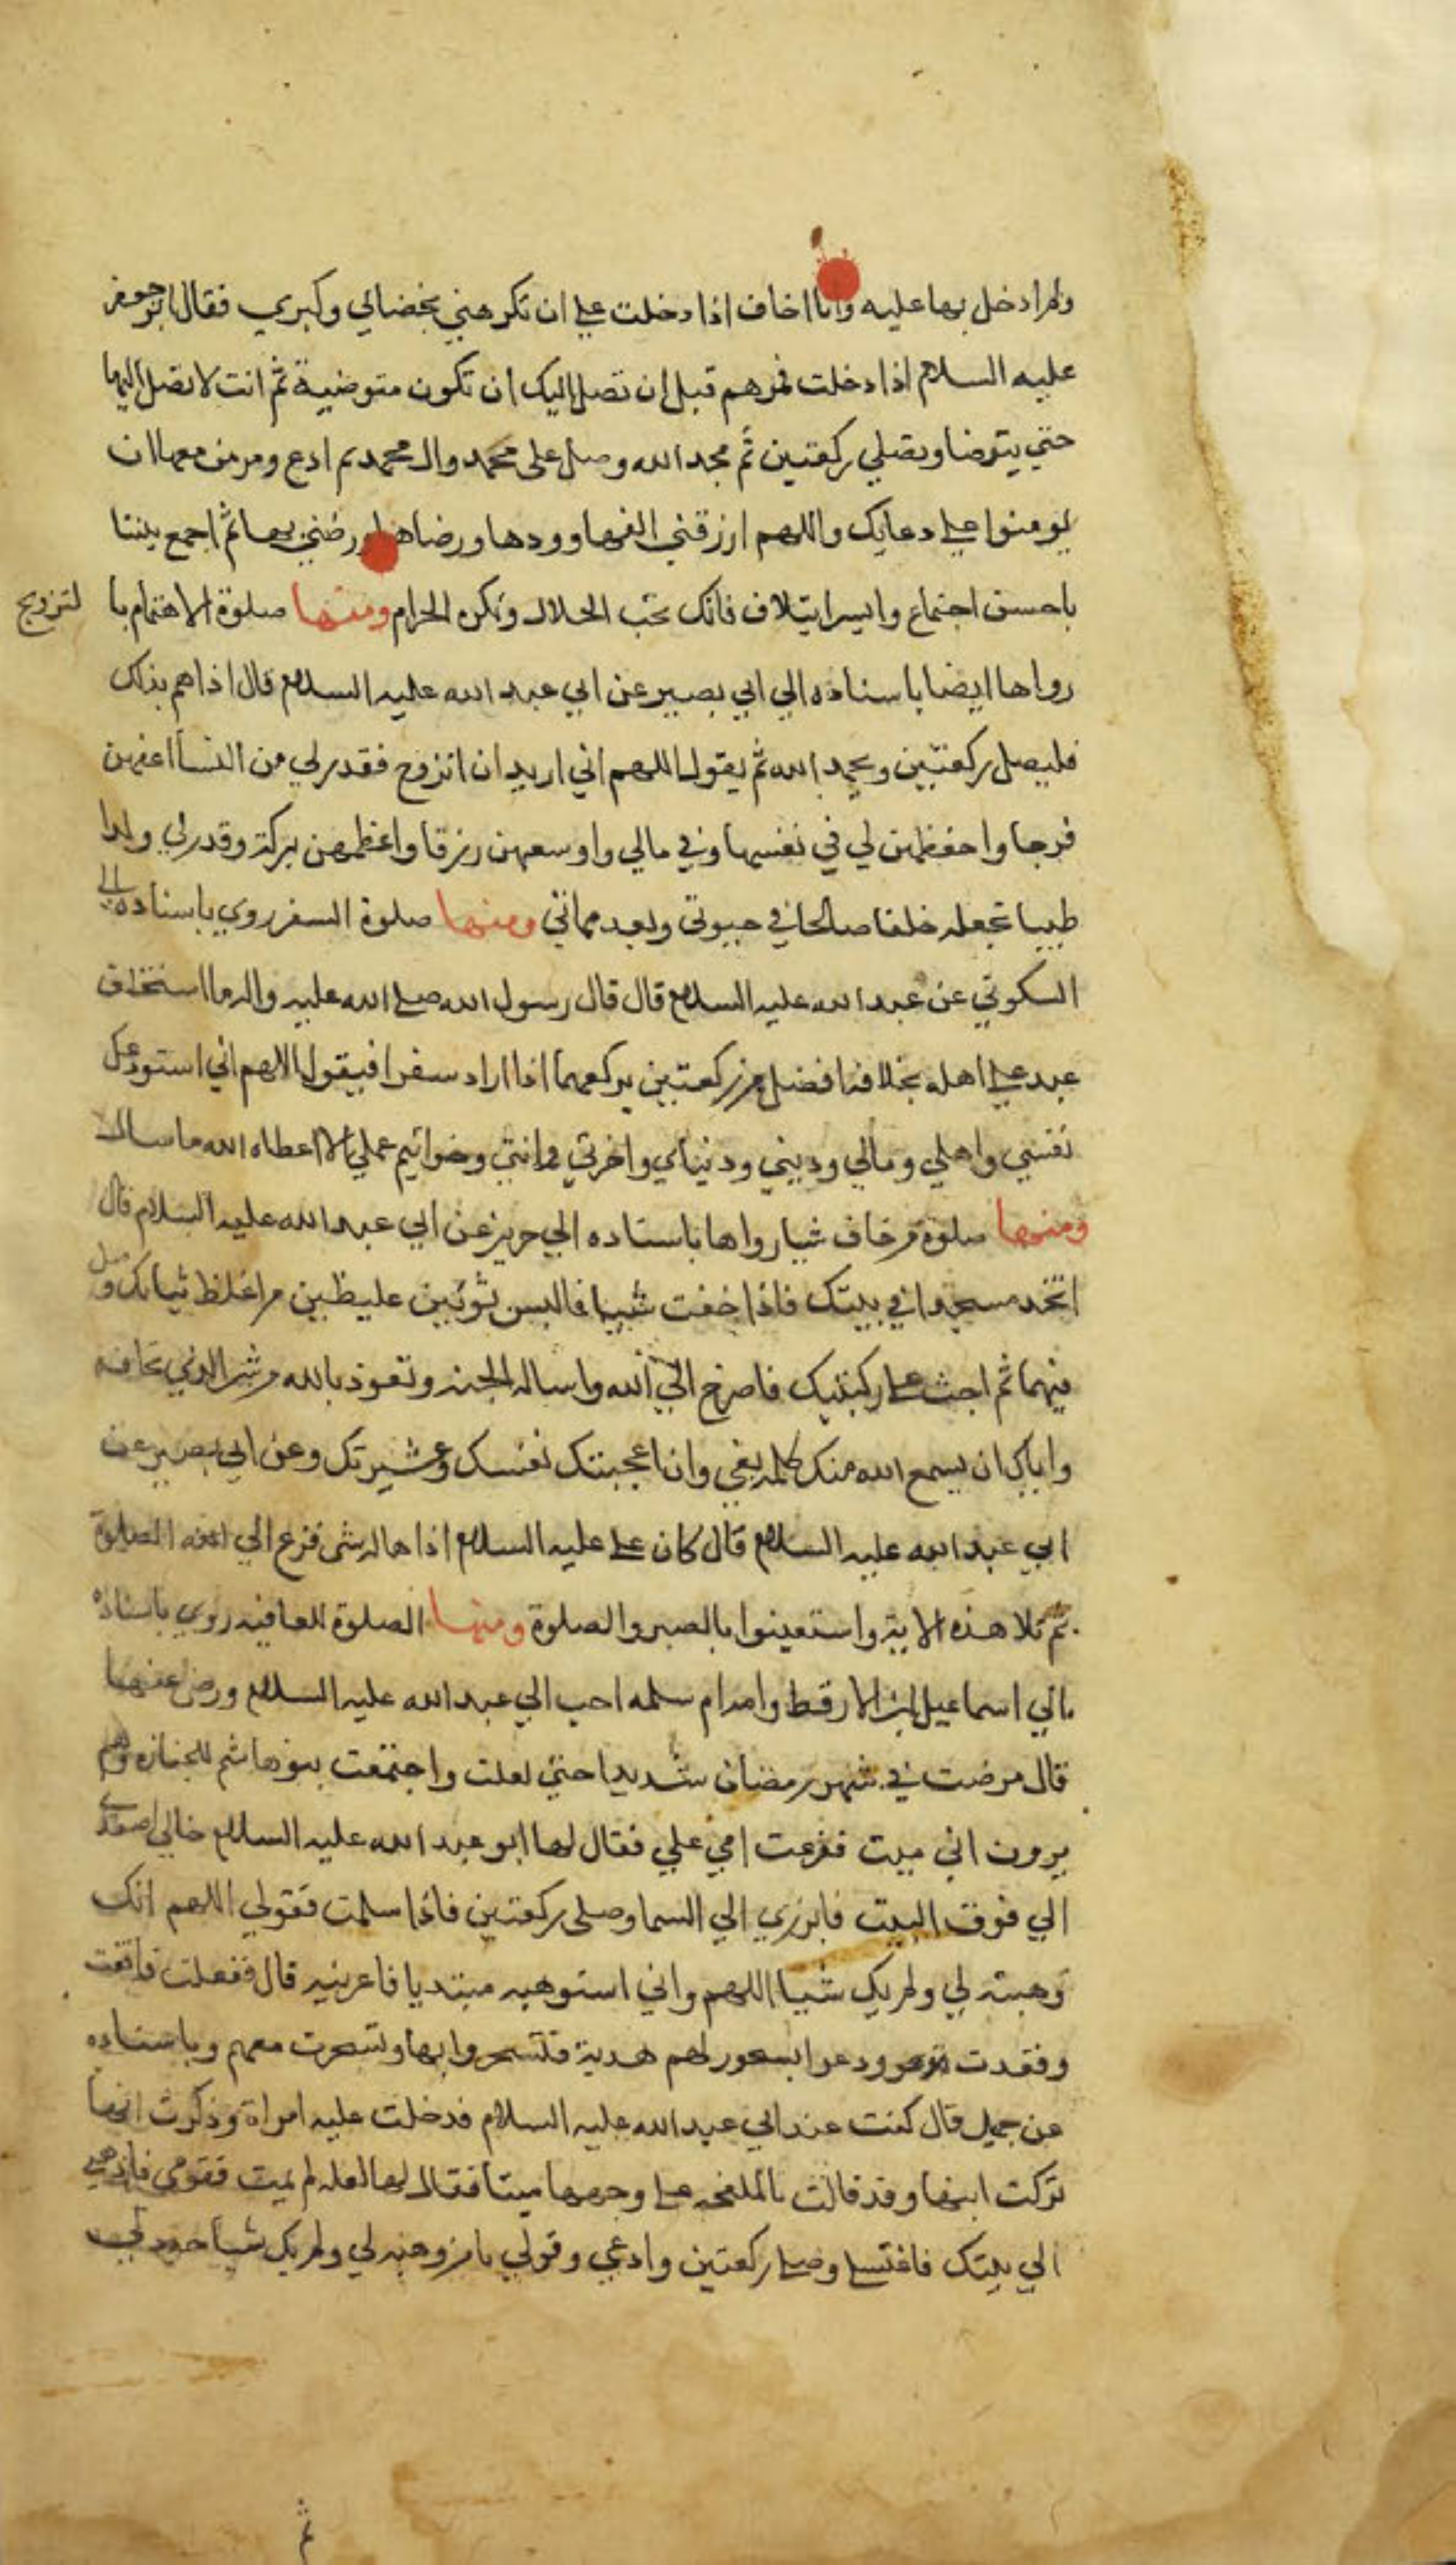 ولم ادخل بها عليه وانا اخاف اذا دخلت علي ان تكرهني لخضابي وكبري فقال ابو جعفر
عليه السلام اذا دخلت فمرهم قبل ان تصل اليك ان تكون متوضية ثم انت لا تصل اليها
حتي يتوضا ويصلي ركعتين ثم مجد الله وصل علي محمد وال محمد ثم ادع ومر من معها ان
يومنوا علي دعايك واللهم ارزقني الفها وودها ورضاها ورضني بها ثم اجمع بيننا
باحسن اجتماع وايسر ايتلاف فانك تحب الحلال وتكره الحرام ومنها صلوة الاهتمام با لتزويج
رواها ايضا باسناده الي ابي بصير عن ابي عبد الله عليه السلام قال اذا هم بذلك
فليصل ركعتين ويحمد الله ثم يقول اللهم اني اريد ان اتزوج فقدر لي من النسا اعفهن
فرجا واحفظهن لي في نفسها وفي مالي واوسعهن رزقا واعظمهن بركة وقدر لي ولدا
طيبا تجعله خلفا صالحا في حيوتي وبعد مماتي ومنها صلوة السفر روي باسناده الي
السكوني عن عبد الله عليه السلام قال قال رسول الله صلي الله عليه واله ما استخلف
عبد علي اهله بخلافة افضل من ركعتين يركعهما اذا اراد سفرا فيقول اللهم اني استودعك
نفسي واهلي ومالي وديني ودنياي واخرتي وامانتي وخواتيم عملي الا اعطاه الله ما سال
ومنها صلوة من خاف شيا رواها باسناده الي حريز عن ابي عبد الله عليه السلام قال
اتخذ مسجدا في بيتك فاذا خفت شييا فالبس ثوبين غليظين من اغلظ ثيابك وصل
فيهما ثم اجث علي ركبتيك فاصرخ الي الله واساله الجنه وتعوذ بالله من شر الذي تخافه
واياك ان يسمع الله منك كلمه بغي وان اعجبتك نفسك وعشيرتك وعن ابي بصير عن
ابي عبد الله عليه السلام قال كان علي عليه السلام اذا هاله شي فزع الي الصلوة
ثم تلا هذه الاية واستعينوا بالصبر والصلوة ومنها الصلوة للعافيه روي باسناده
الي اسماعيل بن الارقط وامه ام سلمه اخت ابي عبد الله عليه السلام ورضي عنهما
قال مرضت في شهر رمضان شديدا حتي ثقلت واجتمعت بنو هاشم للجنازه وهم
يرون اني ميت فجزعت امي علي فقال لها ابو عبد الله عليه السلام خالي اصعدي
الي فوق البيت فابرزي الي السما وصلي ركعتين فاذا سلمت فقولي اللهم انك
وهبته لي ولم يك شيا اللهم واني استوهبه مبتديا فاعرنيه قال ففعلت فافقت
وقعدت ودعوا بسحور لهم هدية فتسحروا بها وتسحرت معهم وباسناده
عن جميل قال كنت عند ابي عبد الله عليه السلام فدخلت عليه امراة وذكرت انها
تركت ابنها وقد قالت بالملحفه علي وجهها ميتا فقال لها لعله لم يمت فقومي فاذهبي
الي بيتك فاغتسلي وصلي ركعتين وادعي وقولي يا من وهبه لي ولم يك شيا جدد لي
ثم